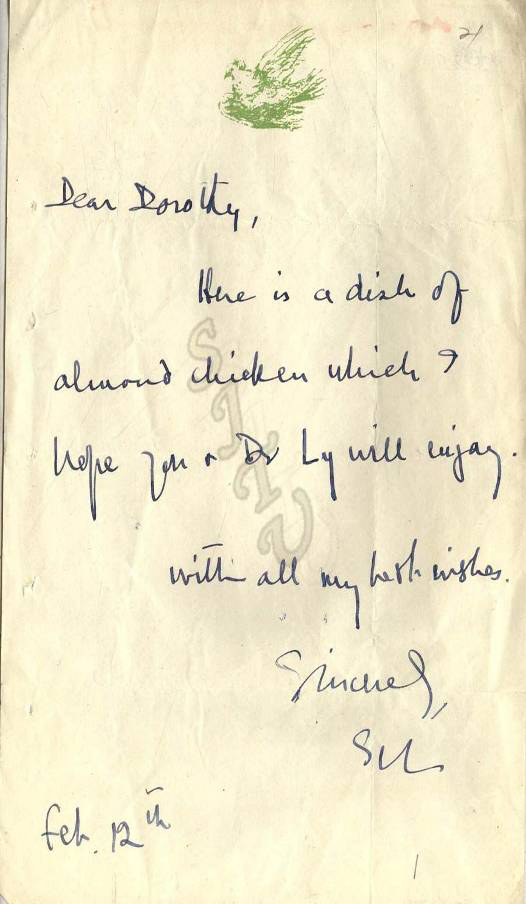 Dear Dorothy,
Here is a dish of
almond chicken which I
hope you & Dr Ly will enjoy.
with all my best wishes.
Sincerely,
Feb. 12th
1